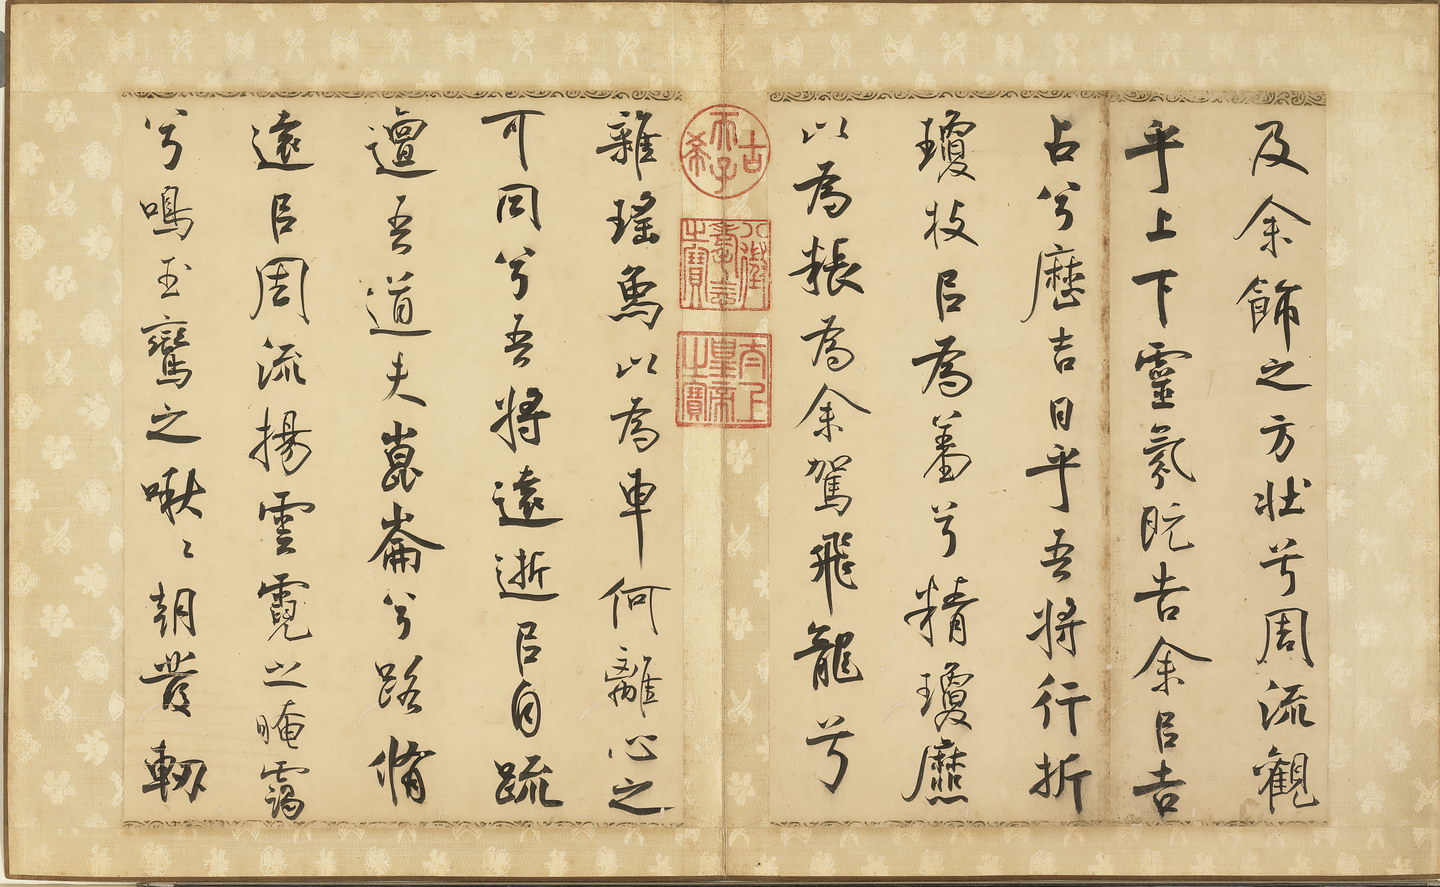 及余飾之方壯兮周流觀
乎上下靈氛既告余㠯吉
占兮歷吉日乎吾將行折
瓊枝㠯為羞兮精瓊爢
以為粻為余駕飛龍兮
古希天子
八徵耄念之寶
太上皇帝之寶
雜瑤象以為車何離心之
可同兮吾將遠逝㠯自疏
邅吾道夫崑崙兮路脩
遠㠯周流揚雲霓之晻靄
兮鳴玉鸞之啾々朝發軔